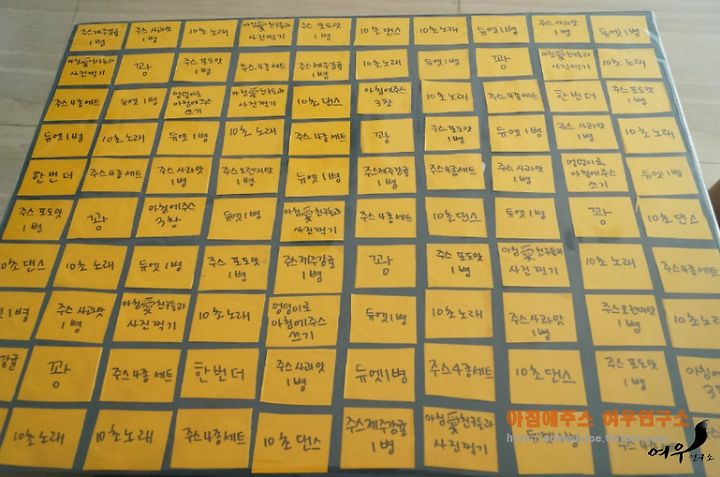 주스제주감귤 1병
주스 사과맛 1병
10초 노래
아침愛친구들과 사진찍기
주스 포도맛 1병
10초 댄스
10초노래
듀엣1병
주스사과맛 1병
듀엣1병
아침愛친구들과 사진찍기
꽝
주스 포도맛 1병
주스4종세트
주스제주감귤 1병
10초노래
듀엣1병
꽝
아침愛친구들과 사진찍기
10초 노래
주스4종세트
듀엣1병
엉덩이로 아침에주스 쓰기
아침愛친구들과 사진찍기
10초 댄스
아침에주스 3창
10초 노래
주스4종세트
한번더
주스 포도맛 1병
듀엣1병
10초 노래
듀엣1병
10초 노래
주스 4종세트
꽝
주스포도맛 1병
듀엣1병
주스사과맛 1병
10초노래
한번더
주스4종세트
주스 사과맛 1병
주스오렌지맛 1병
듀엣1병
주스제주감귤 1병
주스4종세트
주스 사과맛 1병
엉덩이로 아침에주스 쓰기
듀엣1병
주스 포도맛 1병
꽝
아침에주스 3창
듀엣1병
아침愛친구들과 사진찍기
주스4종세트
10초댄스
듀엣1병
꽝
10초댄스
10초 댄스
10초 노래
듀엣1병
주스 포도맛 1병
주스제주감귤 1병
꽝
주스 포도맛 1병
아침愛친구들과 사진찍기
10초노래
주스4종세트
1병
주스 사과맛 1병
아침愛친구들과 사진찍기
10초노래
엉덩이로 아침에주스 쓰기
듀엣1병
10초노래
주스사과맛 1병
주스오렌지맛 1병
10초노래
꽝
주스4종 세트
한번더
주스 사과맛 1병
듀엣1병
주스4종세트
10초댄스
주스 포도맛 1병
아침에
10초노래
10초노래
주스4종세트
10초 댄스
주스제주감귤 1병
아침愛친구들과 사진찍기
아침에주스 여우연구소
여우연구소